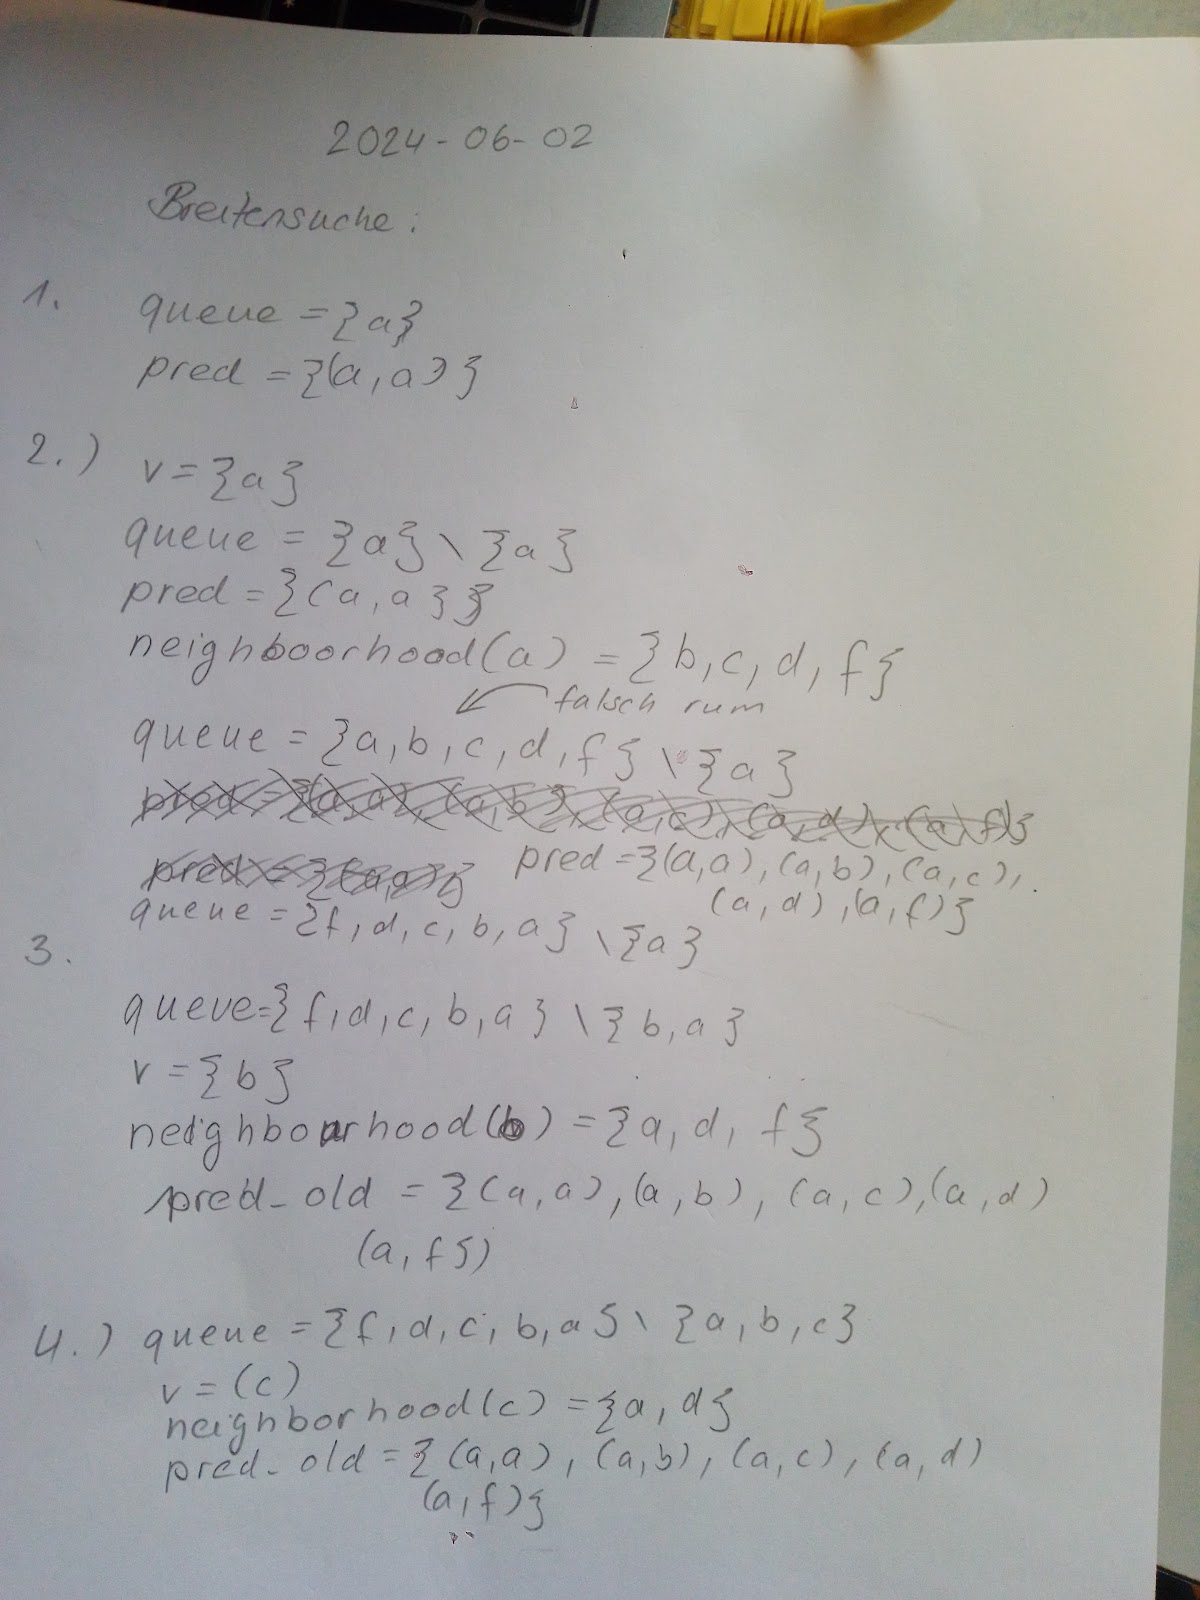 2024-06-02
Breitensuche:
1. queue = {a}
pred = {(a,a)}
2.) v = {a}
queue = {a} \ {a}
pred = {(a,a}}
neighboorhood(a) = {b,c,d,f}
falsch rum
queue = {a,b,c,d,f} \ {a}
pred = {(a,a),(a,b),(a,c),(a,d),(a,f)}
pred = {(a,a)} pred = {(a,a),(a,b),(a,c),
(a,d),(a,f)}
queue = {f,d,c,b,a} \ {a}
3.
queue = {f,d,c,b,a} \ {b,a}
v = {b}
neighbourhood(b) = {a,d,f}
pred_old = {(a,a),(a,b),(a,c),(a,d)
(a,f})
4.) queue = {f,d,c,b,a} \ {a,b,c}
v = (c)
neighborhood(c) = {a,d}
pred_old = {(a,a),(a,b),(a,c),(a,d)
(a,f)}